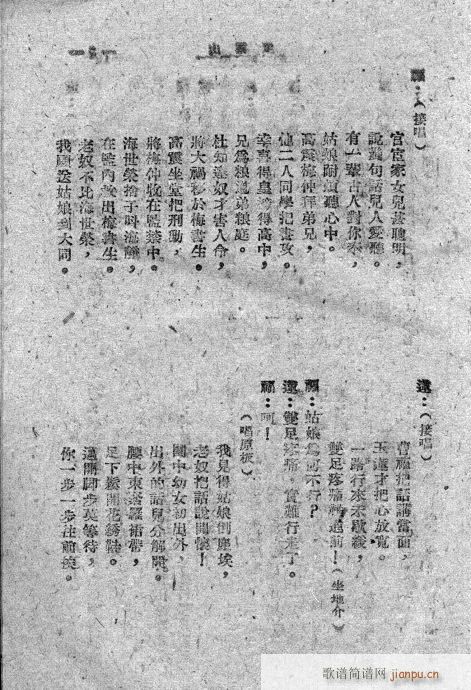 福：（接唱）
官宦家女兒甚聰明，
說幾句話兒人愛聽。
有一輩古人對你奉，
姑娘耐煩聽心中。
高震梅仲拜弟兄，
他二人同學把書攻。
幸喜得皇榜得高中，
兄為糧道弟糧庭。
杜知遠奴才害人命，
將大禍移於梅書生。
高震坐堂把刑動，
將梅仲收在監禁中。
海世榮捨子
在監內救出梅書生。
老奴不比海世榮，
我願送姑娘到大同。
（接唱）
曹福把話講當面，
玉蓮才把心放寬。
一路行來未歇緩，
雙足疼痛難進前！（坐地介）
福：姑娘為何不行？
蓮：雙足疼痛，實難行走了。
福：呵！
（唱原板）
我見得姑娘倒塵埃，
老奴把話說開懷！
閨中幼女初出外，
出外的話兒分解開。
腰中束緊羅裙帶，
足下鬆開花繡鞋。
邁開脚步莫等待，
你一步一步往前挨。
歌谱简谱网
jianpu.cn